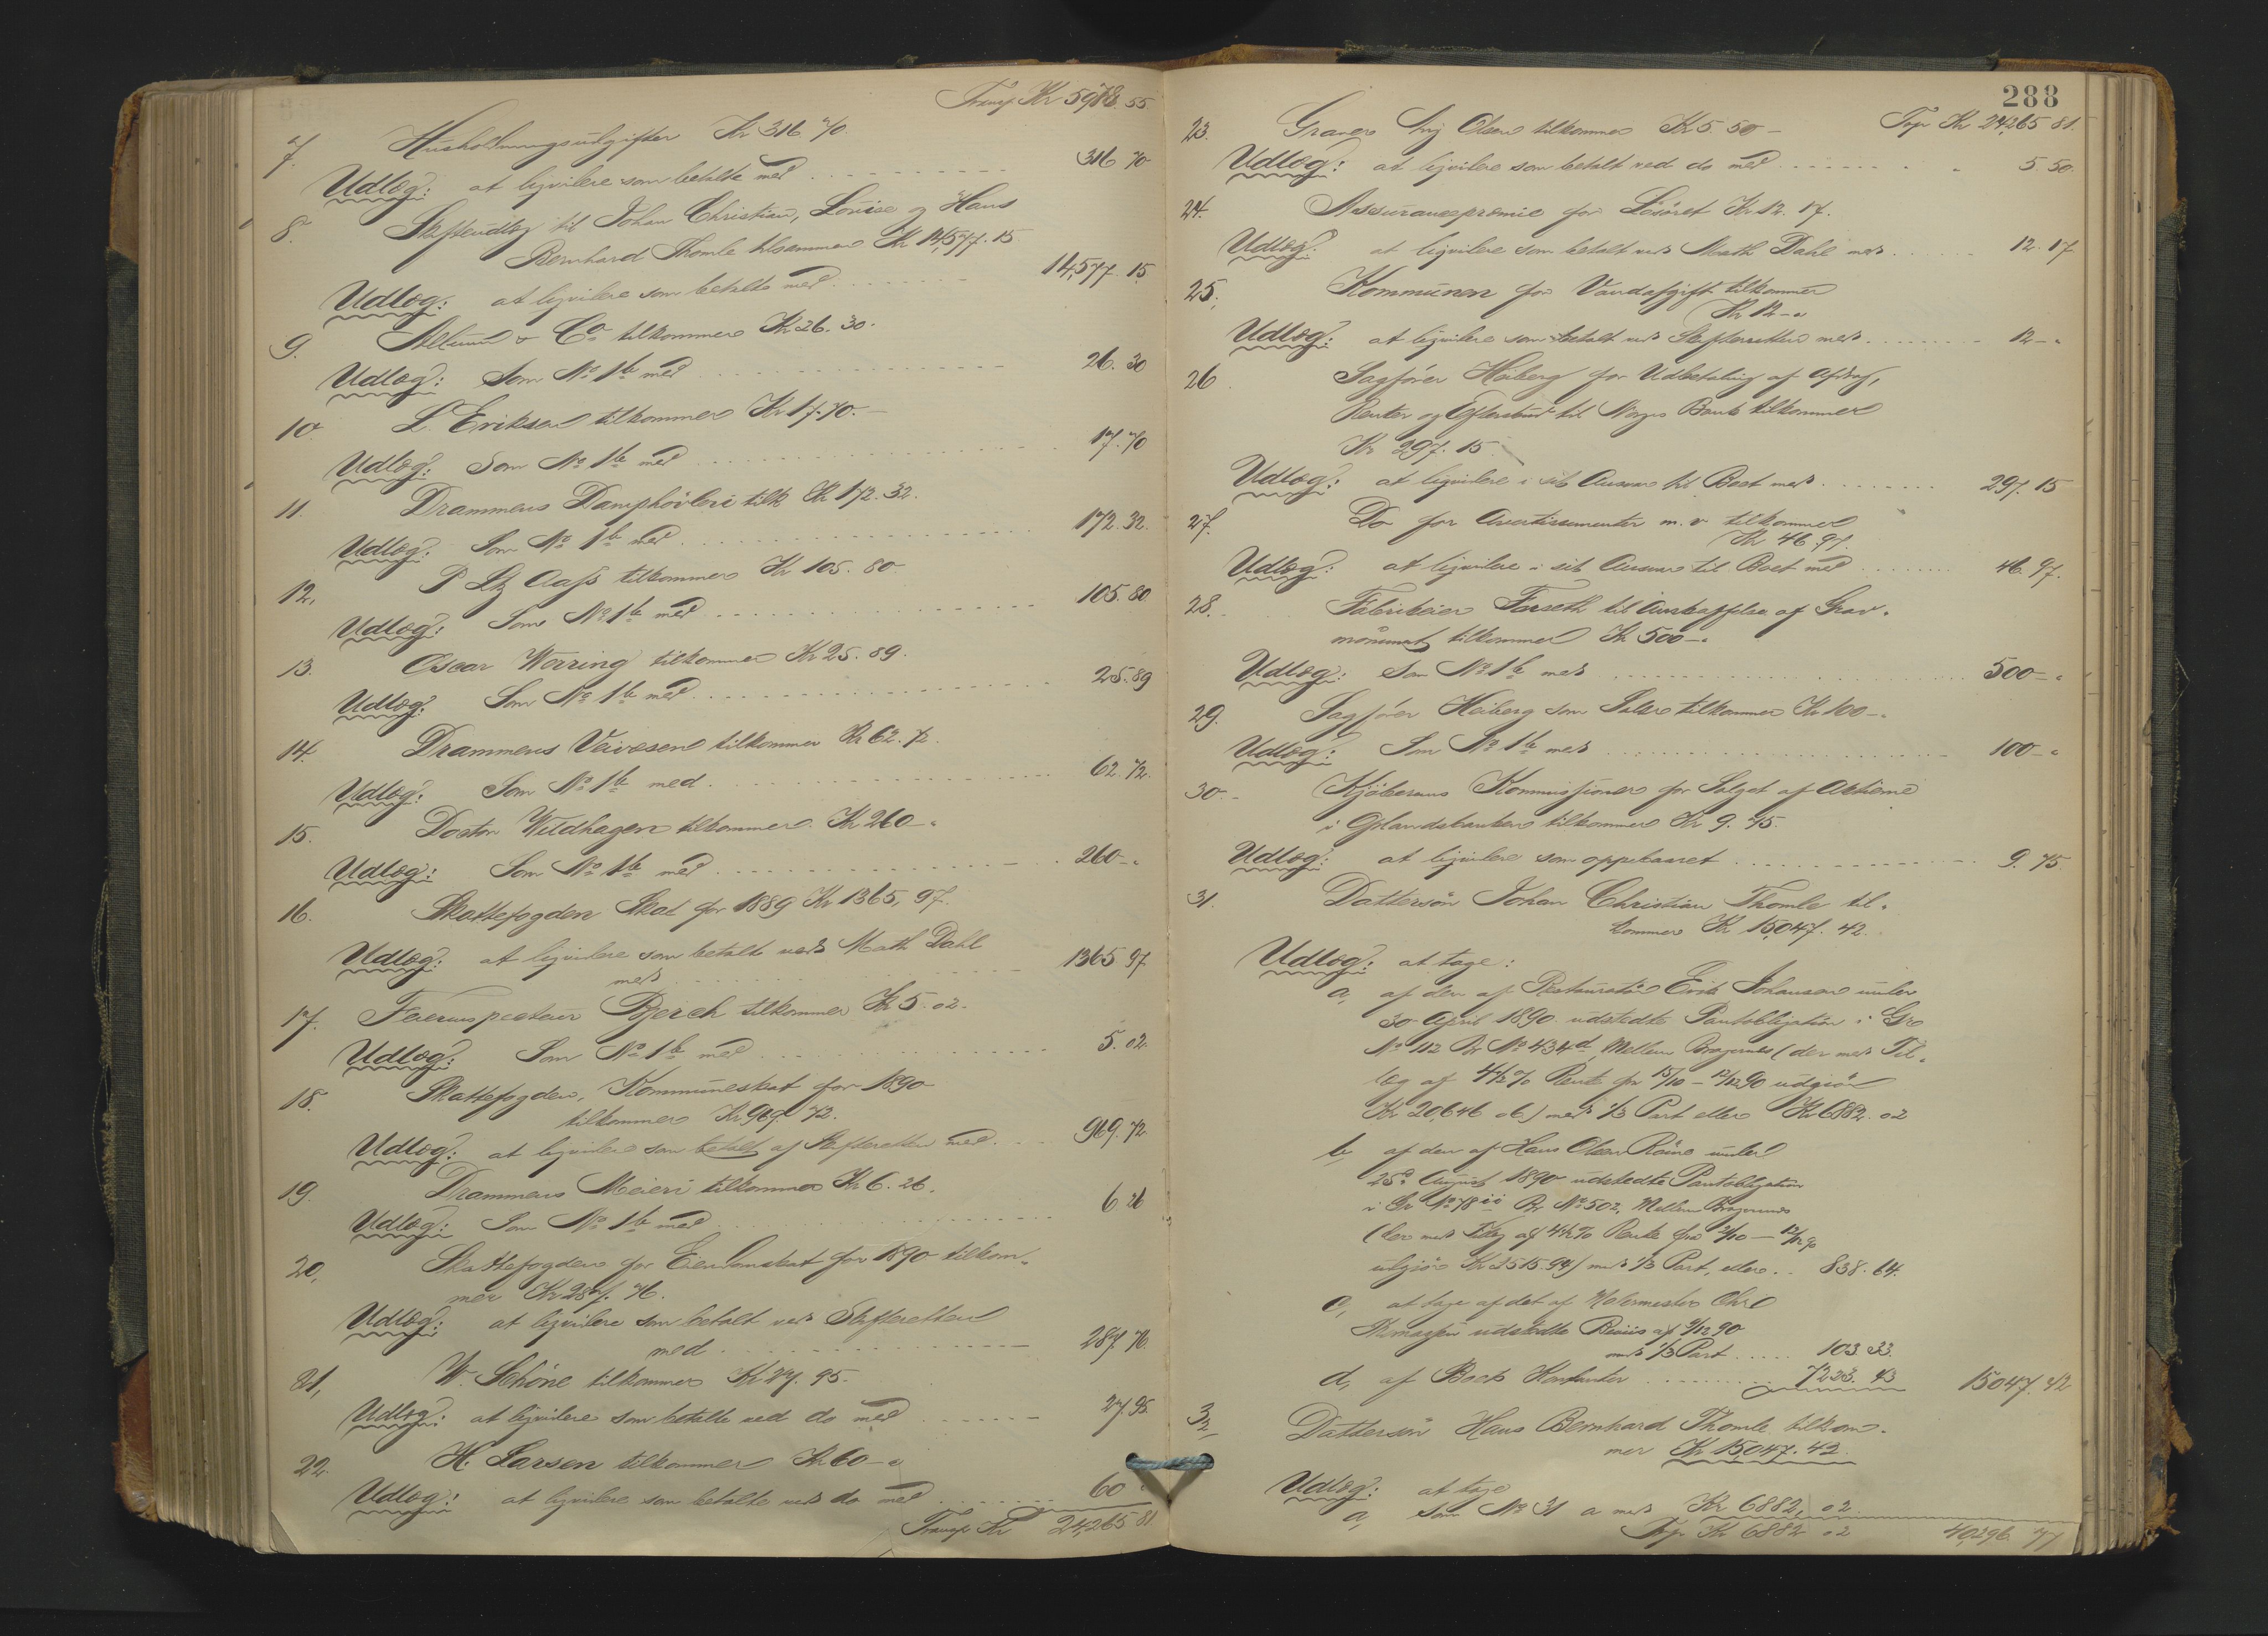 Transp Kr 5978.55
7. Husholdningsudgifter Kr 316 70
Udlæg: at liqvidere som betalte med 316 70
8. Skifteudlæg til Johan Christian, Louise og Hans
Bernhard Thomle tilsammen Kr 14,577.15
Udlæg: at liqvidere som betalte med 14,577.15
9. & Co tilkommer Kr 26.30.
Udlæg: Som No 1 b med 26.30
10. L. Eriksen tilkommer Kr 17.70.
Udlæg: Som No 1 b med 17.70
11. Drammens Damphøvleri tilk Kr 172.32.
Udlæg: Som No 1 b med 172.32.
12, P Ltz Aass tilkommer Kr 105.80
Udlæg: Som No 1 b med 105.80
13. Oscar Wærring tilkommer Kr 25.89.
Udlæg: Som No 1 b med 25.89
14. Drammens Veivæsen tilkommer Kr 62.72.
Udlæg: Som No 1 b med 62.72.
15. Doctor Wildhagen tilkommer Kr 260-"
Udlæg: Som No 1 b med 260-"
16. Skattefogden Skat for 1889 Kr 1365,97.
Udlæg: at liqvidere som betalte ved Math Dahl
med 1365 97
17. Feierinspecteur Bjerch tilkommer Kr 5.02.
Udlæg: Som No 1 b med 5.02.
18. Skattefogden, Kommuneskat for 1890
tilkommer Kr 969 72.
Udlæg: at liqvidere som betalt af Skifteretten med 969.72
19. Drammens Meieri tilkommer Kr 6.26.
Udlæg: Som No 1 b med 6 26
20, Skattefogden for Eiendomskat for 1890 tilkom-
mer Kr 287.76.
Udlæg: at liqvidere som betalt ved Skifteretten
med 287.76.
21, W. Schöne tilkommer Kr 27.95.
Udlæg: at liqvidere som betalte ved do med 27.95.
22. H. Larsen tilkommer Kr 60-"
Udlæg: at liqvidere som betalte ved do med 60 "
Transp Kr 24,265 81.
288
Tsp Kr 24,265 81.
23. Graver Olsen tilkommer Kr 5.50-
Udlæg: at liqvidere som betalt ved do med 5 50.
24. Assurancepræmie for Løsøret Kr 12.17.
Udlæg: at liqvidere som betalt ved Math Dahl med 12.17
25, Kommunen for Vandafgift tilkommer
Kr 12-"
Udlæg: at liqvidere som betalt ved Skifteretten med 12-"
26 Sagfører Heiberg for Udbetaling af Afdrag,
Renter og til Norges Bank tilkommer
Kr 297.15
Udlæg: at liqvidere i sit Ansvar til Boet med 297.15
27. Do for Avertissementer m. v. tilkommer
Kr 46.97.
Udlæg: at liqvidere i sit Ansvar til Boet med 46.97.
28. Fabrikeier Forseth til Anskaffelse af Grav-
monument tilkommer Kr 500-"
Udlæg: Som No 1 b med 500-"
29. Sagfører Heiberg som Salær tilkommer Kr 100-"
Udlæg: Som No 1 b med 100-"
30. Kjøberens Kommissioner for Salget af Aktierne
i Oplandsbanken tilkommer Kr 9.75.
Udlæg: at liqvidere som oppebaaret 9.75
31. Dattersøn Johan Christian Thomle til-
kommer Kr 15,047.42.
Udlæg: at tage:
a, af den af Restauratør Erik Johansen under
30 April 1890 udstedte Pantobligation i Gr
No 112 Br No 434d Mellem Bragernes (der med Til-
læg af 4½% Rente fra 15/10 - 12/12 90 udgjør
Kr 20,646 06) med 1/3 Part eller Kr 6882.02
b, af den af Hans Olsen Røine under
25de August 1890 udstedte Pantobligation
i Gr No 78 ii Br No 502, Mellem Bragernes
(der med Tillæg af 4½% Rente fra 2/10 - 12/12 90
udgjør Kr 2515.94) med 1/3 Part, eller 838.64.
c, at tage af det af Malermester Chr.
Thomassen udstedte Bevis af 9/12 90
med 1/3 Part 103.33.
d, af Boets Kontanter 7223.43 15047.42
32 Dattersøn Hans Bernhard Thomle tilkom-
mer Kr 15,047.42.
Udlæg: at tage
a, som No 31 a med Kr 6882,02
Tsp Kr 6882 02 40,296 77